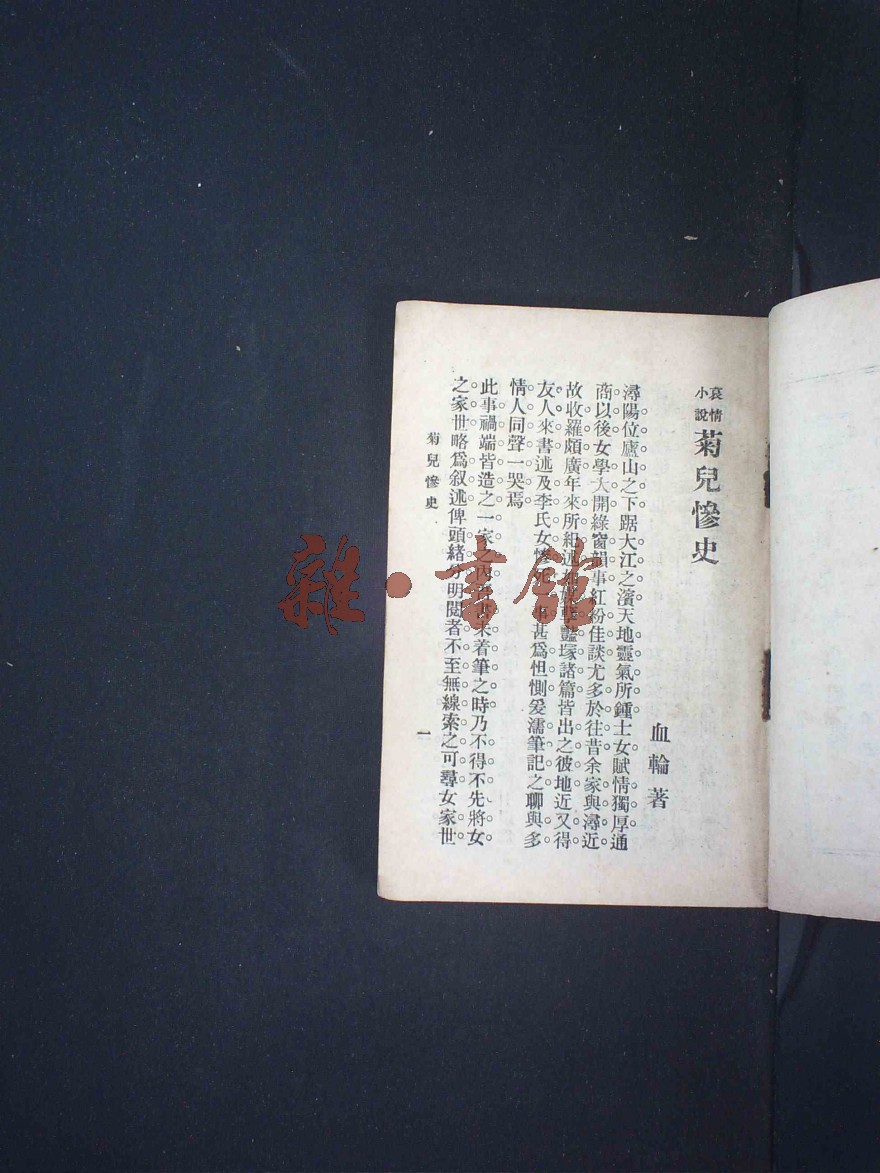 哀情小說 菊兒慘史
血輪著
潯陽位廬山之下踞大江之濱天地靈氣所鍾士女賦情獨厚通
商以後女學大開綠窗韻事紅粉佳談尤多於往昔余家與潯近
故收羅頗廣年來所紀述 豔塚諸篇皆出之彼地近又得
友人來書述及李氏女慘死 事甚爲怛惻爰濡筆記之聊與多
情人同聲一哭焉
此事禍端皆造之一家之內 未着筆之時乃不得不先將女
之家世略爲叙述俾頭緒分明閱者不至無線索之可尋女家世
菊兒慘史
一
雜·書館